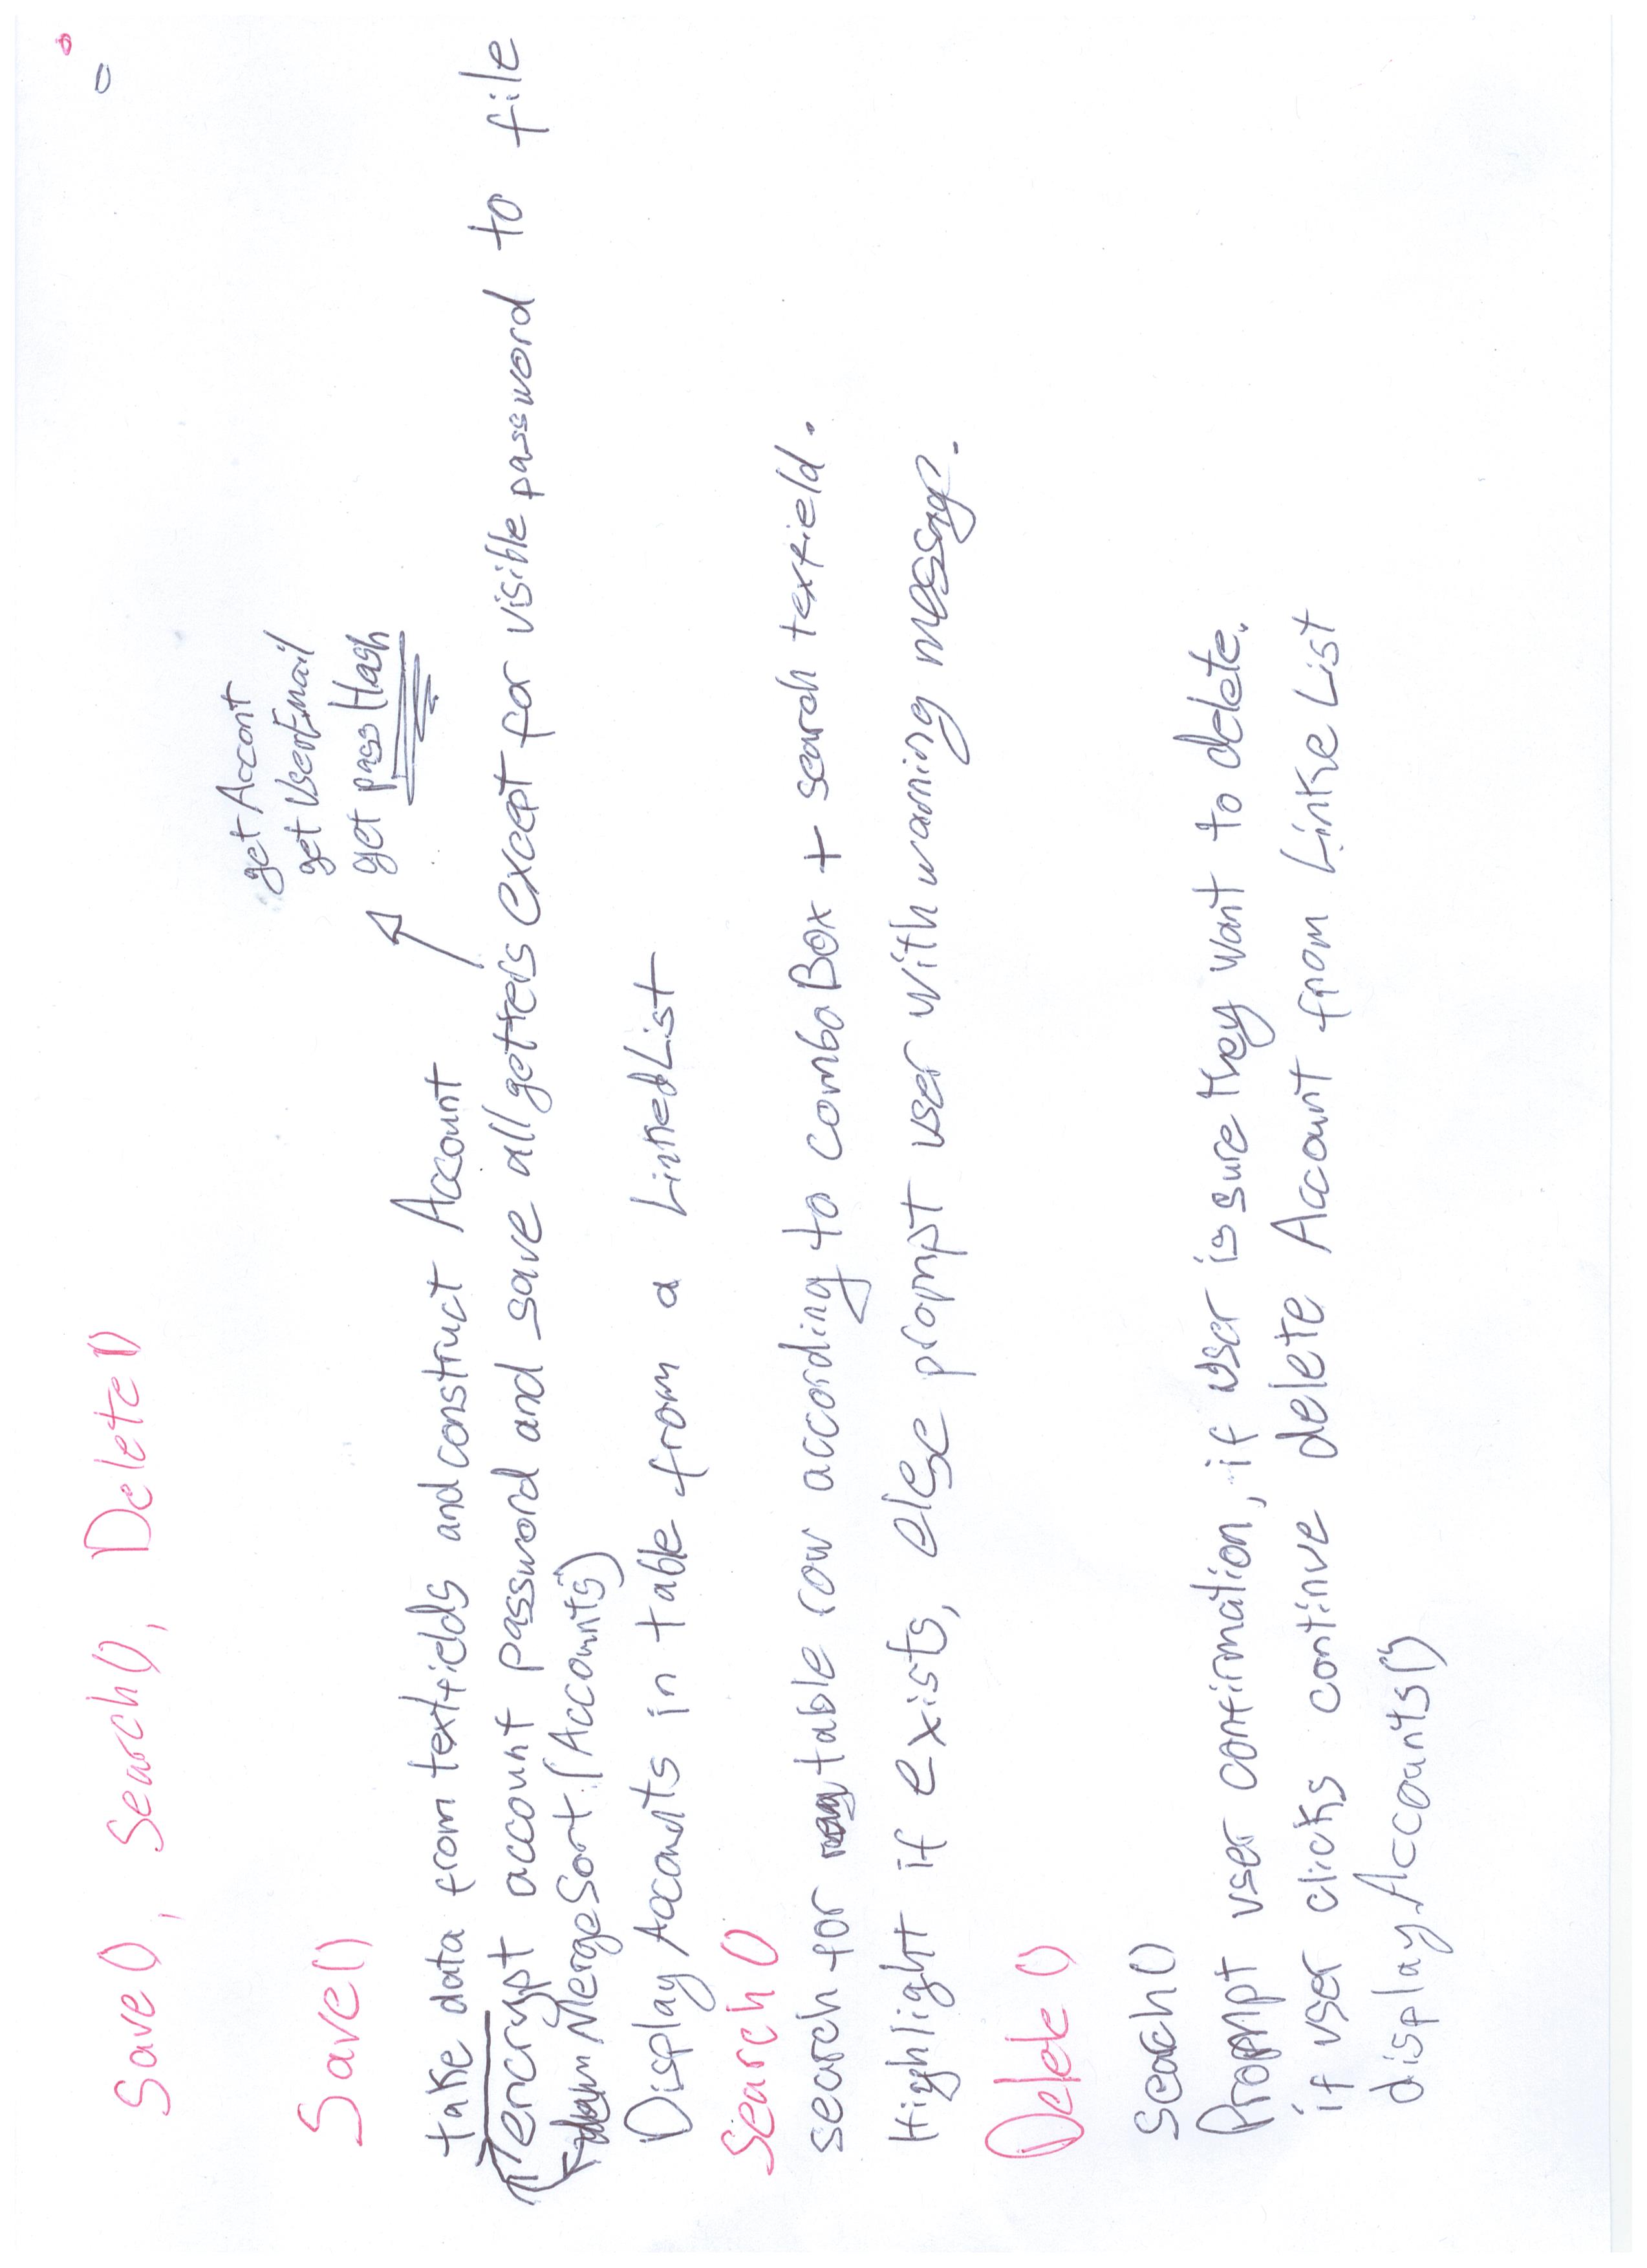 Save(), Search(), Delete()
Save()
get Accont
get UserEmail
get passHash
take data from textfields and construct Account
encrypt account password and save all getters except for visible password to file
MergeSort(Accounts)
Display Accounts in table from a LinkedList
Search()
search for table row according to comboBox + search textfield.
Highlight if exists, else prompt user with warning message.
Delete()
search()
Prompt user confirmation, if user is sure they want to delete.
if user clicks continue delete Account from LinkeList
displayAccounts()